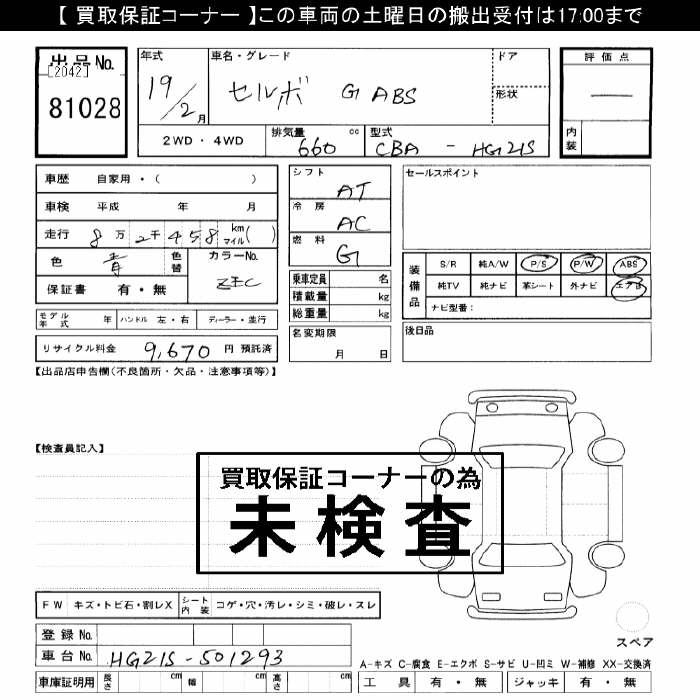 【 買取保証コーナー 】この車両の土曜日の搬出受付は17:00まで
出品No. [2042] 81028
年式 19/2月
車名・グレード セルボ G ABS
ドア
形状
評価点 ―
内装
2WD・4WD
排気量 660 cc
型式 CBA - HG21S
車歴 自家用・( )
車検 平成 年 月
走行 8万2千458 km マイル( )
色 青 色替
カラーNo. ZEC
保証書 有・無
シフト AT
冷房 AC
燃料 G
乗車定員 名
積載量 kg
総重量 kg
セールスポイント
装備品 S/R 純A/W P/S P/W ABS
純TV 純ナビ 革シート 外ナビ エアB
ナビ型番：
モデル年式 年 ハンドル 左・右 ディーラー・並行
名変期限 月 日
後日品
リサイクル料金 9,670 円 預託済
【出品店申告欄(不良箇所・欠品・注意事項等)】
【検査員記入】
買取保証コーナーの為
未検査
FW キズ・トビ石・割レX シート内装 コゲ・穴・汚レ・シミ・破レ・スレ
登録No.
車台No. HG21S-501293
スペア
A-キズ C-腐食 E-エクボ S-サビ U-凹ミ W-補修 XX-交換済
車庫証明用 長さ cm 幅 cm 高さ cm 工具 有・無 ジャッキ 有・無